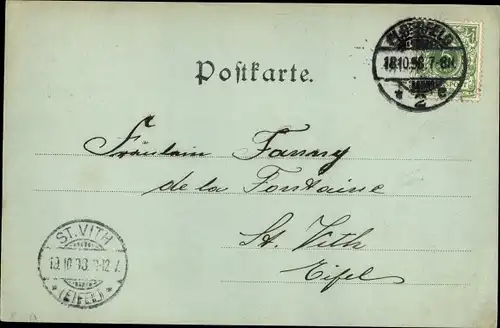 ELBERFELD
18.10.98. 7-8N.
* 2 e
5
Postkarte.
Fräulein Fanny
de la Fontaine
St. Vith
Eifel
ST. VITH
19.10.98.
* (EIFEL) *